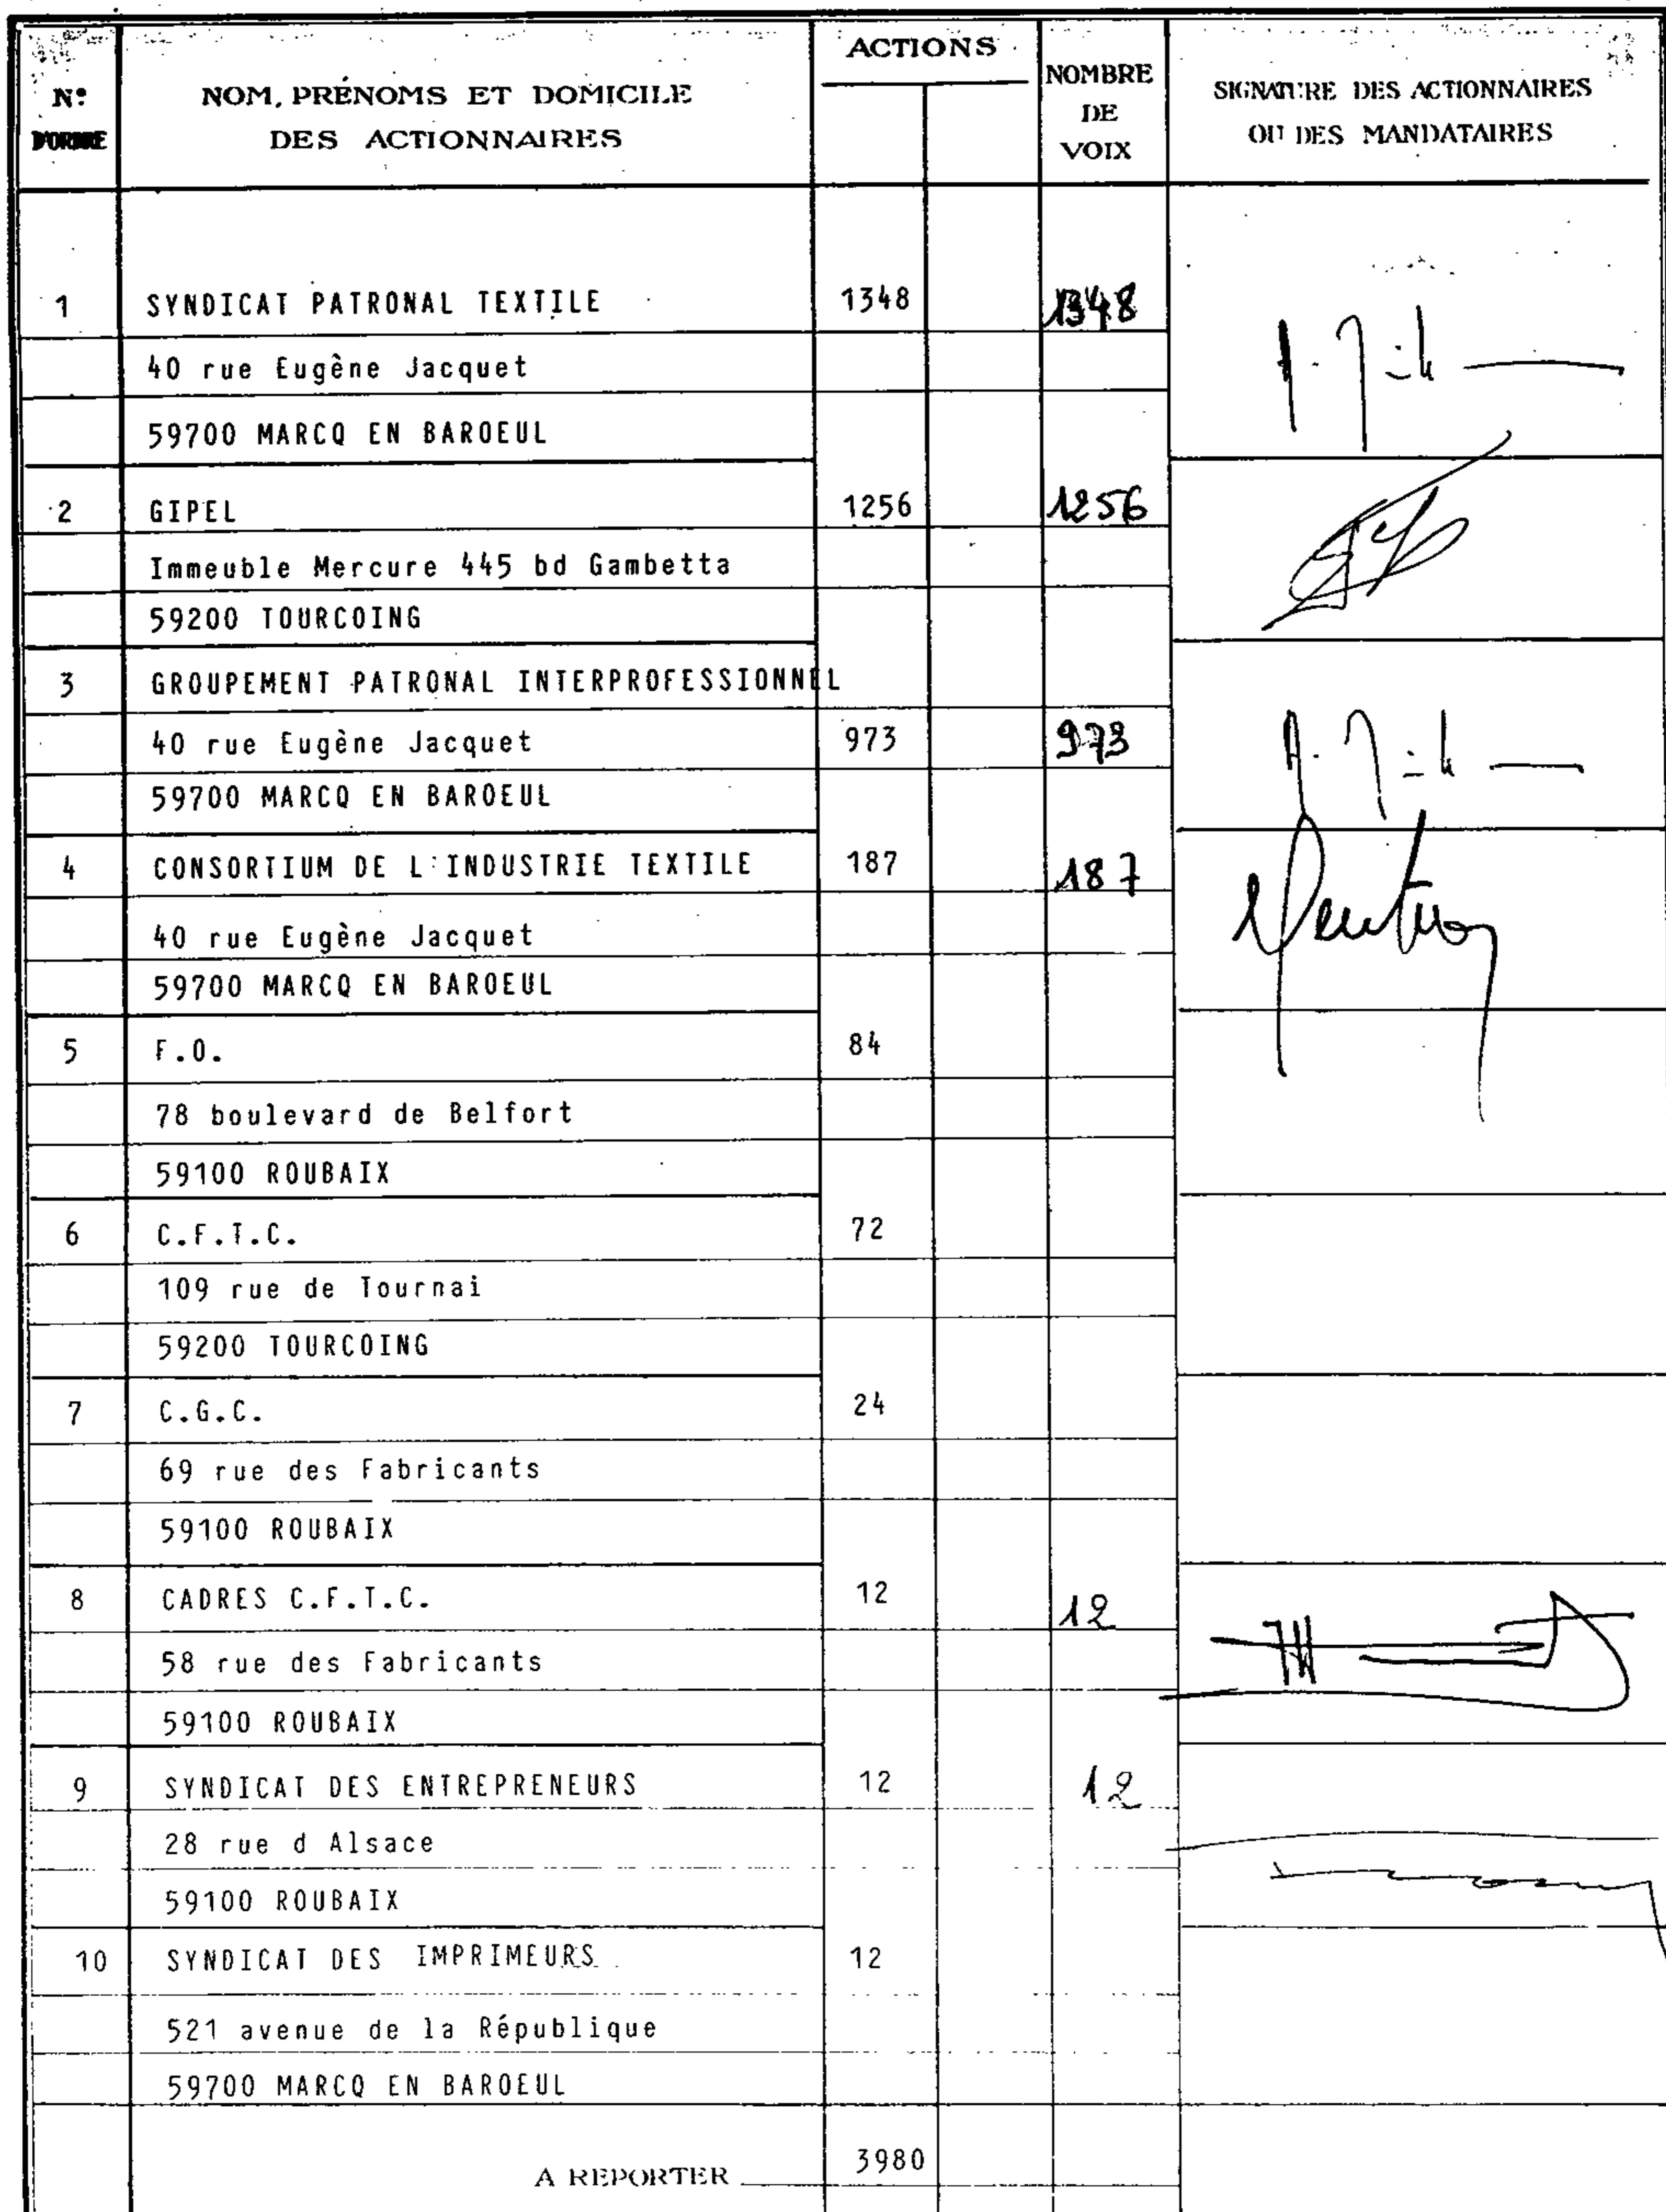 N° D'ORDRE | NOM, PRÉNOMS ET DOMICILE DES ACTIONNAIRES | ACTIONS | NOMBRE DE VOIX | SIGNATURE DES ACTIONNAIRES OU DES MANDATAIRES
1 SYNDICAT PATRONAL TEXTILE 1348 1348
40 rue Eugène Jacquet
59700 MARCQ EN BAROEUL
2 GIPEL 1256 1256
Immeuble Mercure 445 bd Gambetta
59200 TOURCOING
3 GROUPEMENT PATRONAL INTERPROFESSIONNEL
40 rue Eugène Jacquet 973 973
59700 MARCQ EN BAROEUL
4 CONSORTIUM DE L'INDUSTRIE TEXTILE 187 187
40 rue Eugène Jacquet
59700 MARCQ EN BAROEUL
5 F.O. 84
78 boulevard de Belfort
59100 ROUBAIX
6 C.F.T.C. 72
109 rue de Tournai
59200 TOURCOING
7 C.G.C. 24
69 rue des Fabricants
59100 ROUBAIX
8 CADRES C.F.T.C. 12 12
58 rue des Fabricants
59100 ROUBAIX
9 SYNDICAT DES ENTREPRENEURS 12 12
28 rue d Alsace
59100 ROUBAIX
10 SYNDICAT DES IMPRIMEURS 12
521 avenue de la République
59700 MARCQ EN BAROEUL
A REPORTER 3980